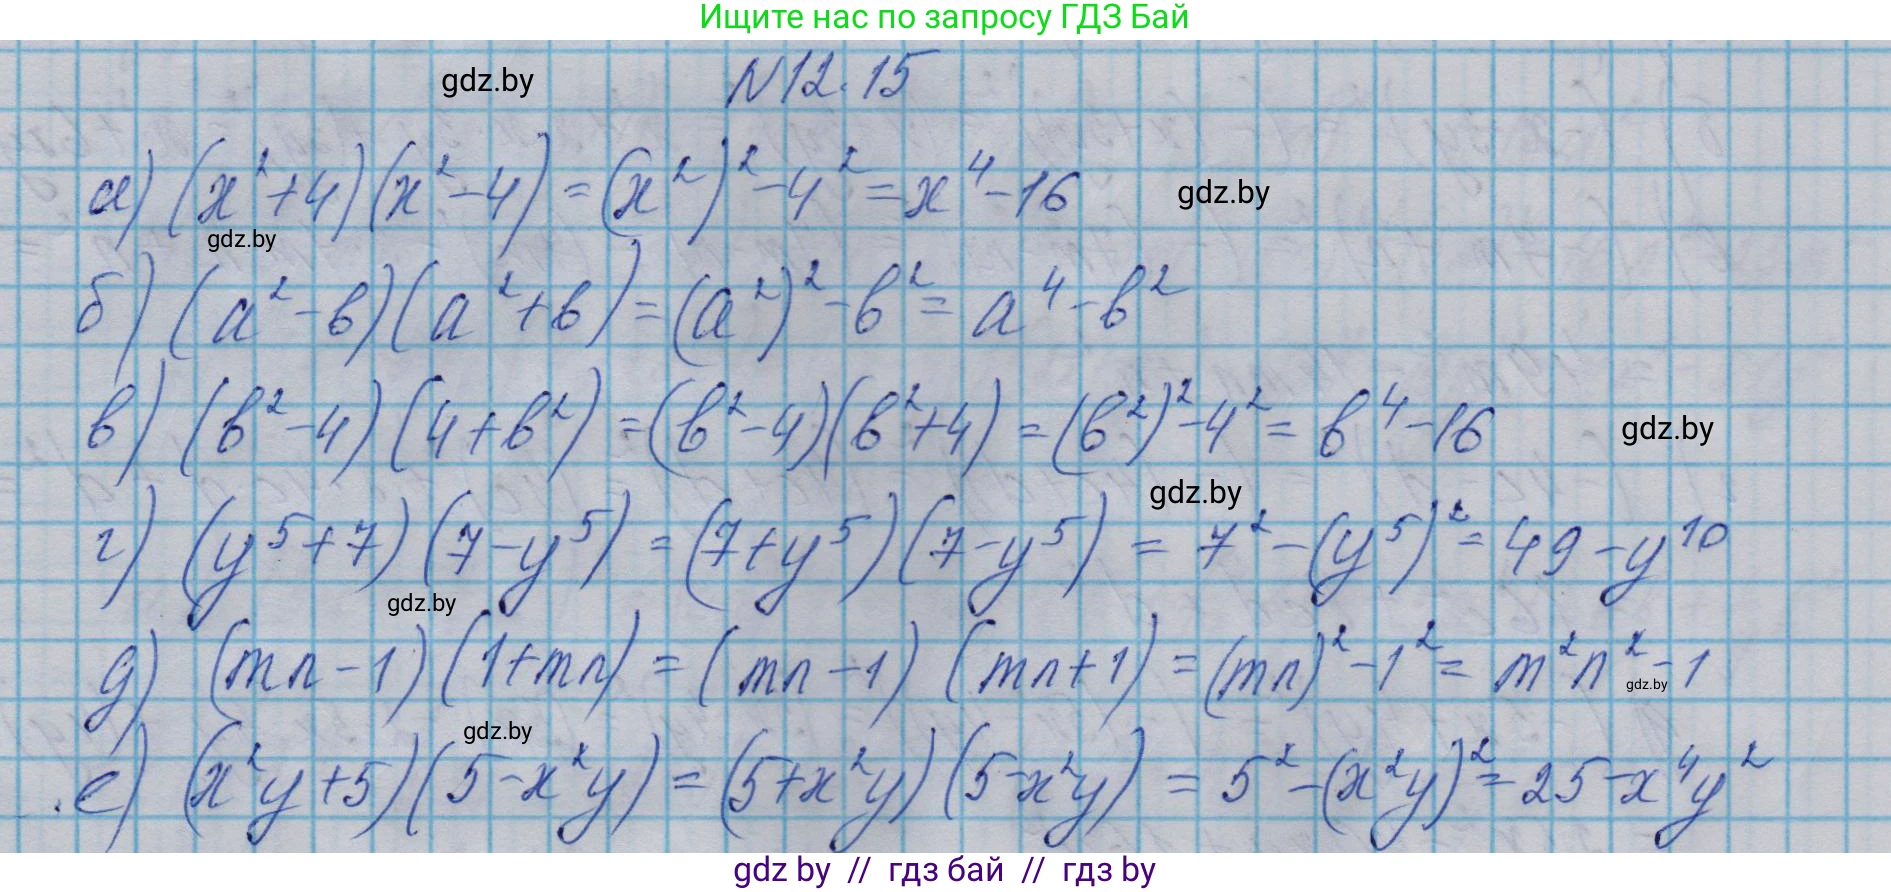 Ищите нас по запросу ГДЗ Бай
gdz.by
N12.15
а) (x²+4)(x²-4)=(x²)²-4²=x⁴-16
gdz.by
gdz.by
б) (a²-b)(a²+b)=(a²)²-b²=a⁴-b²
в) (b²-4)(4+b²)=(b²-4)(b²+4)=(b²)²-4²=b⁴-16
gdz.by
gdz.by
г) (y⁵+7)(7-y⁵)=(7+y⁵)(7-y⁵)=7²-(y⁵)²=49-y¹⁰
gdz.by
д) (mn-1)(1+mn)=(mn-1)(mn+1)=(mn)²-1²=m²n²-1
gdz.by
gdz.by
е) (x²y+5)(5-x²y)=(5+x²y)(5-x²y)=5²-(x²y)²=25-x⁴y²
gdz by // гдз бай // гдз by